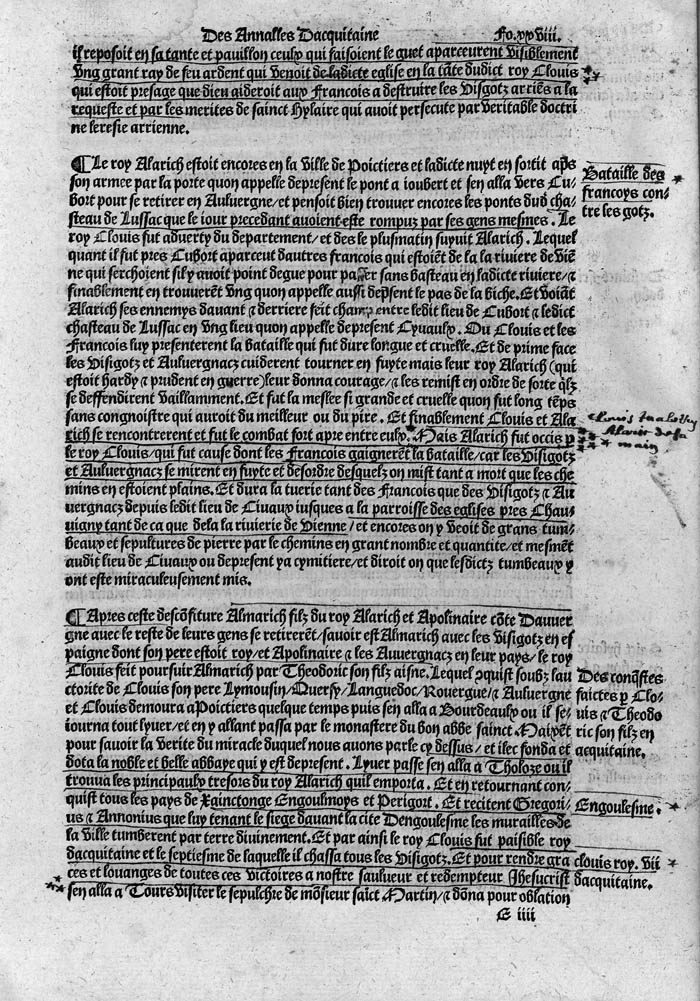 Des Annalles Dacquitaine Fo.xxviii.
il reposoit en sa tante et pavillon ceulx qui faisoient le guet aparceurent visiblement
vng grant ray de feu ardent qui venoit de ladicte eglise en la tāte dudict roy Clouis
qui estoit presage que dieu aideroit aux Francois a destruire les Visgotz arriēs a la
requeste et par les merites de sainct Hylaire qui auoit persecute par veritable doctri
ne leresie arrienne.
¶ Le roy Alarich estoit encores en la ville de Poictiers et ladicte nuyt en sortit aps
son armee par la porte quon appelle depresent le pont a ioubert et sen alla vers Cu⸗
bort pour se retirer en Auluergne/et pensoit bien trouver encores les ponts dud cha⸗
steau de Lussac que le iour precedant avoient este rompuz par ses gens mesmes. Le
roy Clouis fut aduerty du departement/et des le plusmatin suyuit Alarich. Lequel
quant il fut pres Cubort aparceut dautres francois qui estoiēt de la la riviere de viē⸗
ne qui serchoient sily auoit point degue pour passer sans basteau en ladicte riviere/⁊
finablement en trouverēt vng quon appelle aussi depsent le pas de la biche. Et voiāt
Alarich ses ennemys davant ⁊ derriere feit champ entre ledit lieu de Cubort ⁊ ledict
chasteau de Lussac en vng lieu quon appelle depresent Cyuaulx. Ou Clouis et les
Francois luy presenterent la bataille qui fut dure longue et cruelle. Et de prime face
les Visigotz et Auluergnacz cuiderent tourner en fuyte mais leur roy Alarich (qui
estoit hardy ⁊ prudent en guerre) leur donna courage/⁊ les remist en ordre de sorte q̄lz
se deffendirent vaillamment. Et fut la meslee si grande et cruelle quon fut long tēps
sans congnoistre qui auroit du meilleur ou du pire. Et finablement Clouis et Ala
rich se rencontrerent et fut le combat fort apre entre eulx. Mais Alarich fut occis p
le roy Clouis/qui fut cause dont les Francois gaignerēt la bataille/car les Visigotz
et Auluergnacz se mirent en fuyte et desordre desquelz on mist tant a mort que les che
mins en estoient plains. Et dura la tuerie tant des Francois que des Visigotz ⁊ Au
vergnacz depuis ledit lieu de Ciuaux iusques a la parroisse des eglises pres Chau⸗
uigny tant de ca que dela la rivierie de Vienne/et encores on y veoit de grans tum⸗
beaux et sepultures de pierre par le chemins en grant nombre et quantite/et mesmēt
audit lieu de Ciuaux ou depresent ya cymitiere/et diroit on que lesdictz tumbeaux y
ont este miraculeusement mis.
¶ Apres ceste descōfiture Almarich filz du roy Alarich et Apolinaire cōte Dauuer
gne avec le reste de leurs gens se retirerēt/sauoir est Almarich avec les Visigotz en es
paigne dont son pere estoit roy/et Apolinaire ⁊ les Auuergnacz en leur pays/le roy
Clouis feit poursuir Almarich par Theodoric son filz aisne. Lequel ɔquist soubz lau
ctorite de Clouis son pere Lymousin/Quersy/Languedoc/Rouergue/⁊ Auluergne
et Clouis demoura a Poictiers quelque temps puis sen alla a Bourdeaulx ou il se⸗
iourna tout lyuer/et en y allant passa par le monastere du bon abbe sainct Maixēt
pour sauoir la verite du miracle duquel nous avons parle cy dessus/et ilec fonda et
dota la noble et belle abbaye qui y est depresent. Lyuer passe sen alla a Tholoze ou il
trouva les principaulx tresors du roy Alarich quil emporta. Et en retournant con⸗
quist tous les pays de Xainctonge Engoulmoys et Perigort. Et recitent Gregori⸗
us ⁊ Annonius que luy tenant le siege davant la cite Dengoulesme les murailles de
la ville tumberent par terre divinement. Et par ainsi le roy Clouis fut paisible roy
dacquitaine et le septiesme de laquelle il chassa tous les Visigotz. Et pour rendre gra
ces et louanges de toutes ces victoires a nostre saulueur et redempteur Jhesucrist
sen alla a Tours visiter le sepulchre de mōsieur saīct Martin/⁊ dōna pour oblation
E iiii
Bataille des
francoys con⸗
tre les gotz.
Des conq̄stes
faictes p Clo⸗
uis ⁊ Theodo
ric son filz en
acquitaine.
Engoulesme.
clouis roy. vii
dacquitaine.